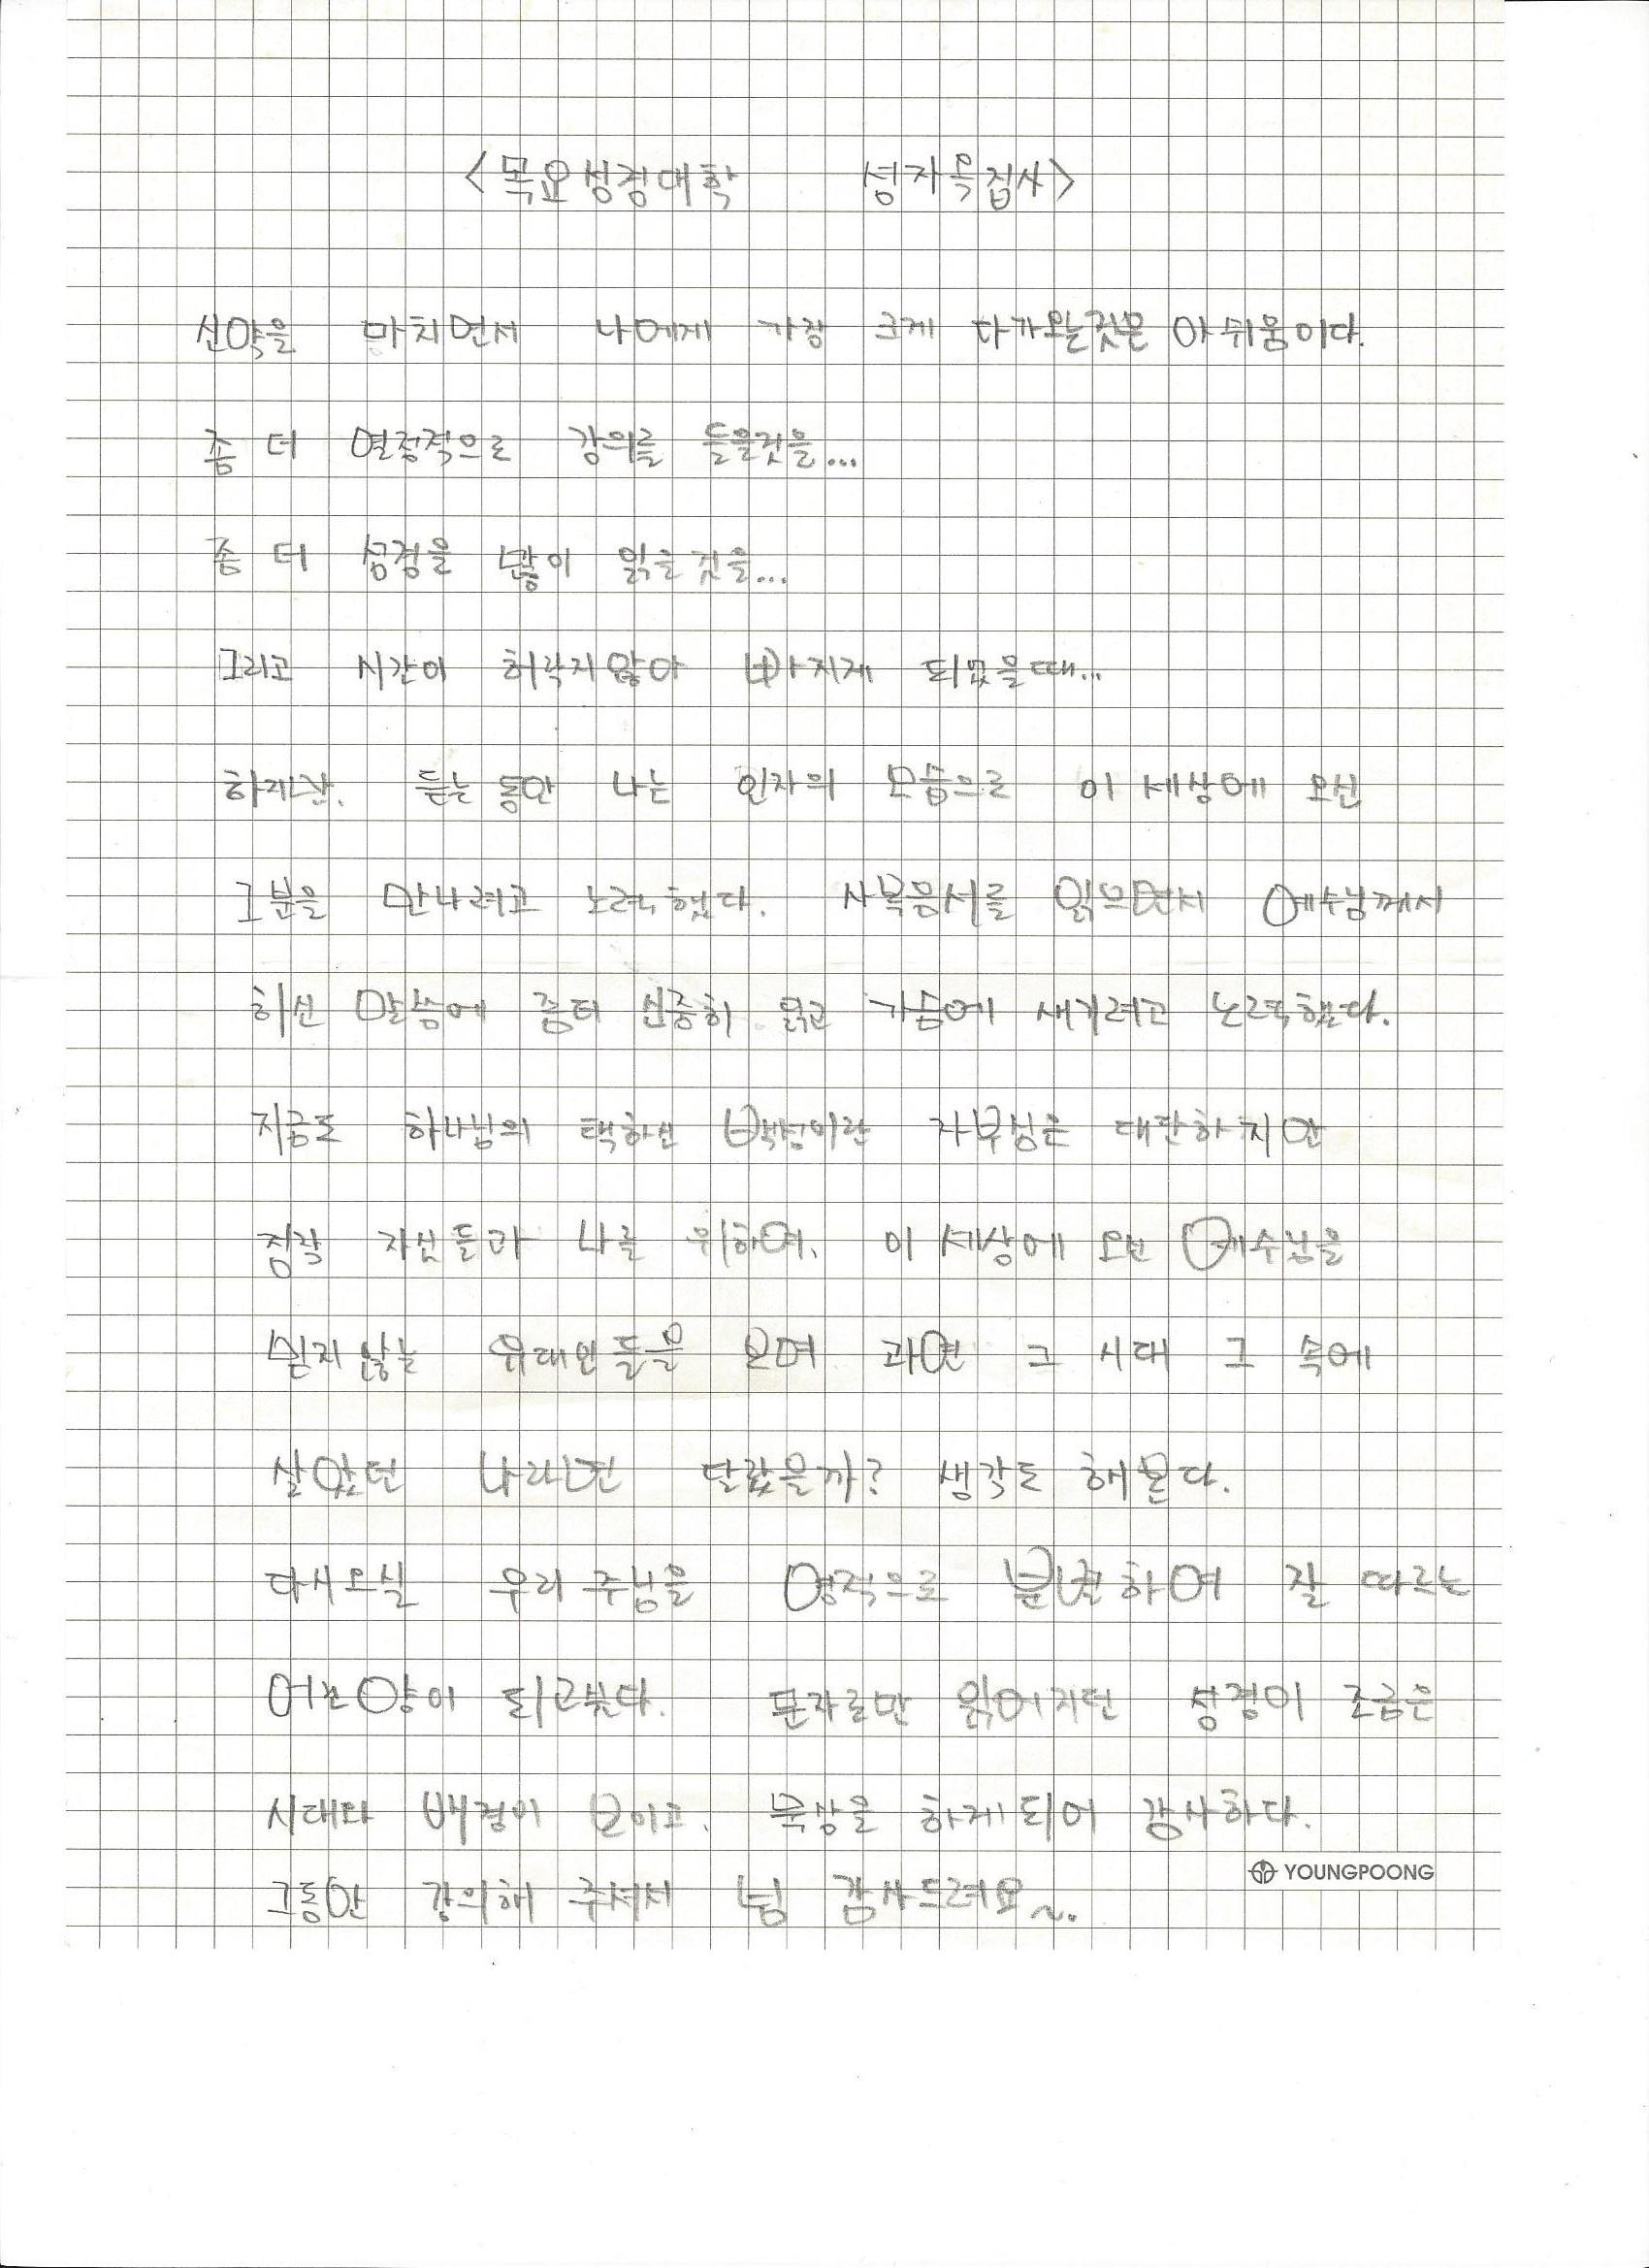 <목요성경대학 성자옥집사>
신약을 마치면서 나에게 가장 크게 다가오는것은 아쉬움이다.
좀 더 열정적으로 강의를 들을것을...
좀 더 성경을 많이 읽을것을...
그리고 시간이 허락지않아 빠지게 되었을때...
하지만. 듣는 동안 나는 인자의 모습으로 이 세상에 오신
그분을 만나려고 노력했다. 사복음서를 읽으면서 예수님께서
하신 말씀에 좀더 신중히 읽고 가슴에 새기려고 노력했다.
지금도 하나님의 택하신 백성이란 자부심은 대단하지만
정작 자신들과 나를 위하여. 이 세상에 오신 예수님을
믿지않는 유대인들을 보며 과연 그 시대 그 속에
살았던 나라면 달랐을까? 생각도 해본다.
다시오실 우리 주님을 영적으로 분별하여 잘 따르는
어린양이 되고싶다. 문자로만 읽어지던 성경이 조금은
시대와 배경이 보이고. 묵상을 하게되어 감사하다.
그동안 강의해 주셔서 넘 감사드려요~.
YOUNGPOONG